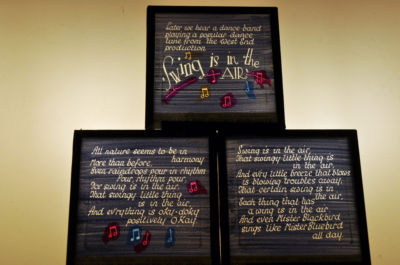 Later we hear a dance band
playing a popular dance
tune from the West End
production
Swing is in the
AIR
All nature seems to be in
harmony
More than before,
Even raindrops pour in rhythm
Pour, rhythm, pour.
For swing is in the air,
That swingy little thing
is in the air,
And ev'rything is oky-doky
positively O.Kay.
Swing is in the air,
That swingy little thing is
in the air,
And ev'ry little breeze that blows
is blowing troubles away;
That certain swing is in
the air,
Each thing that has
a wing is in the air
And even Mister Blackbird
sings like Mister Bluebird
all day.